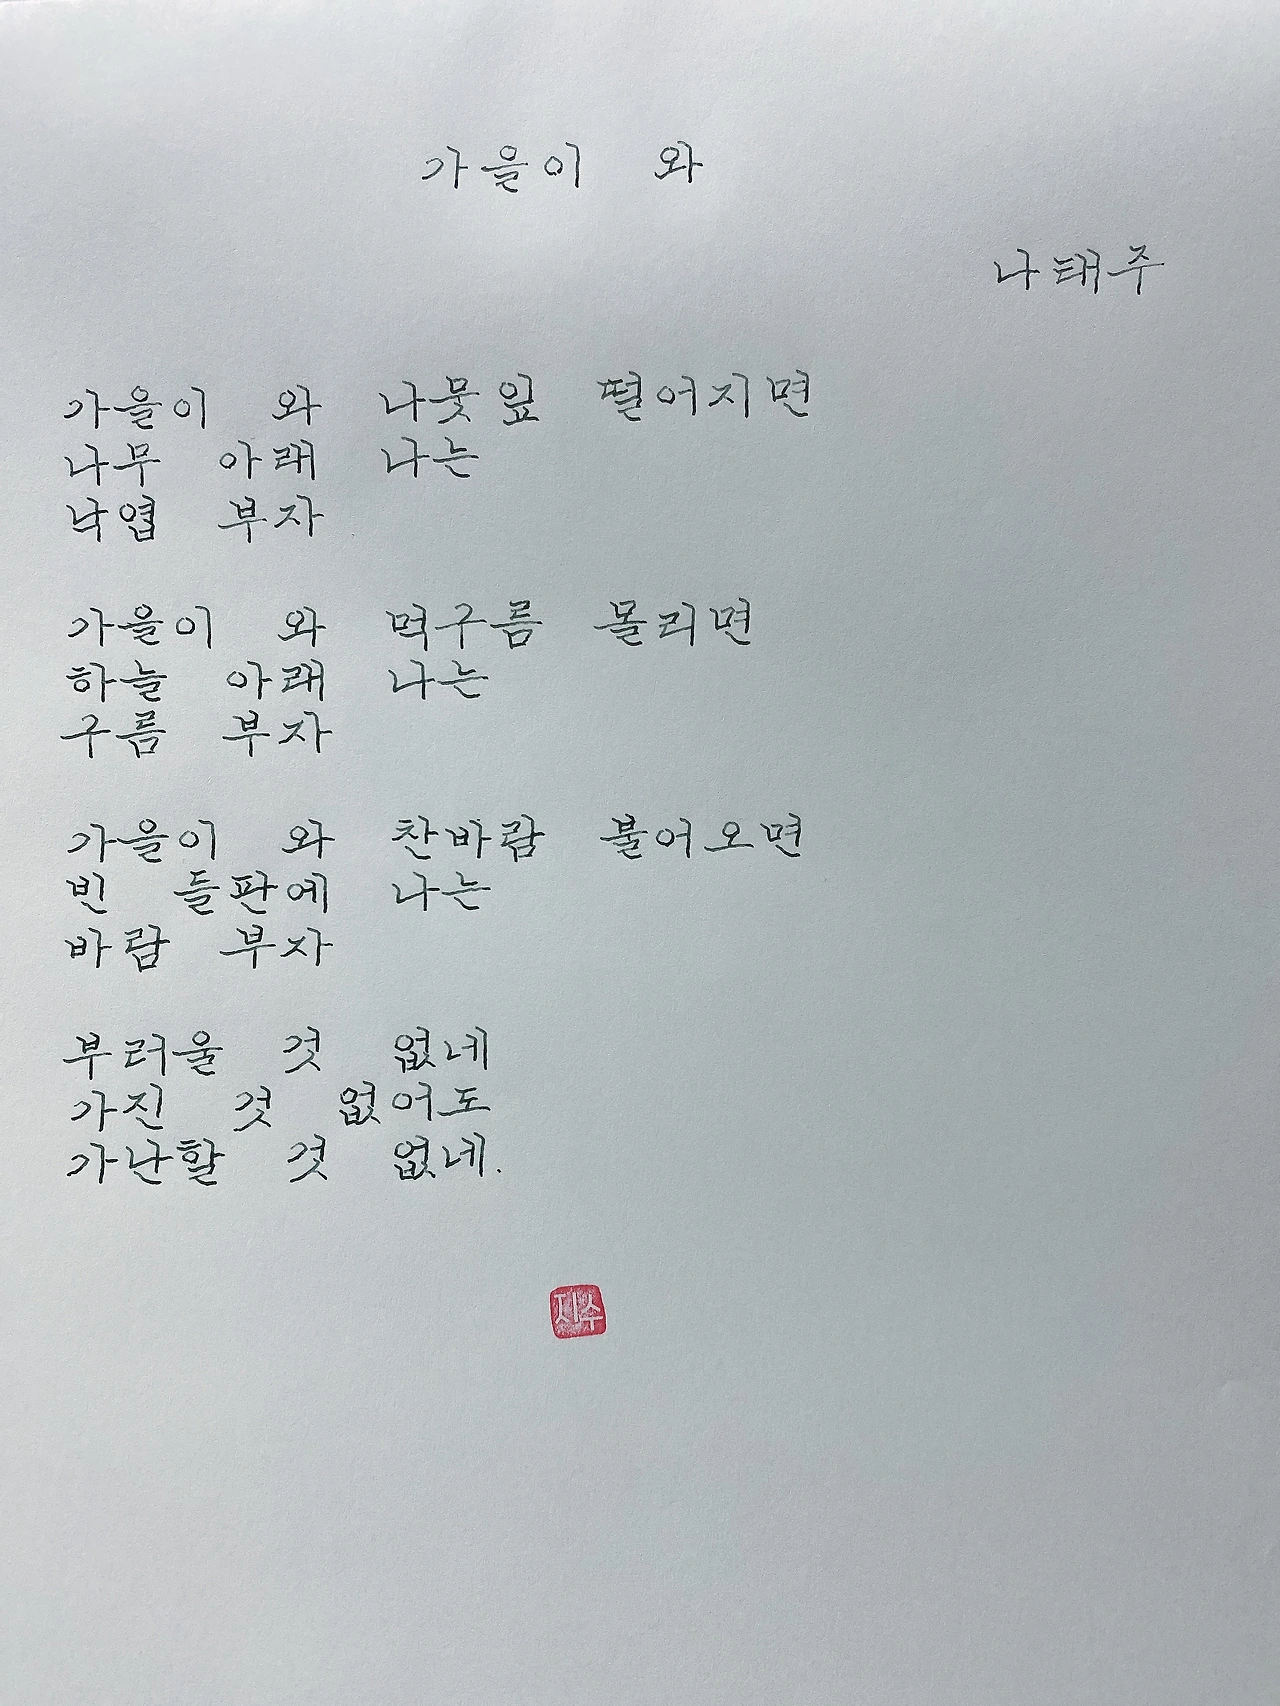 가을이 와
나태주
가을이 와 나뭇잎 떨어지면
나무 아래 나는
낙엽 부자
가을이 와 먹구름 몰리면
하늘 아래 나는
구름 부자
가을이 와 찬바람 불어오면
빈 들판에 나는
바람 부자
부러울 것 없네
가진 것 없어도
가난할 것 없네.
지수